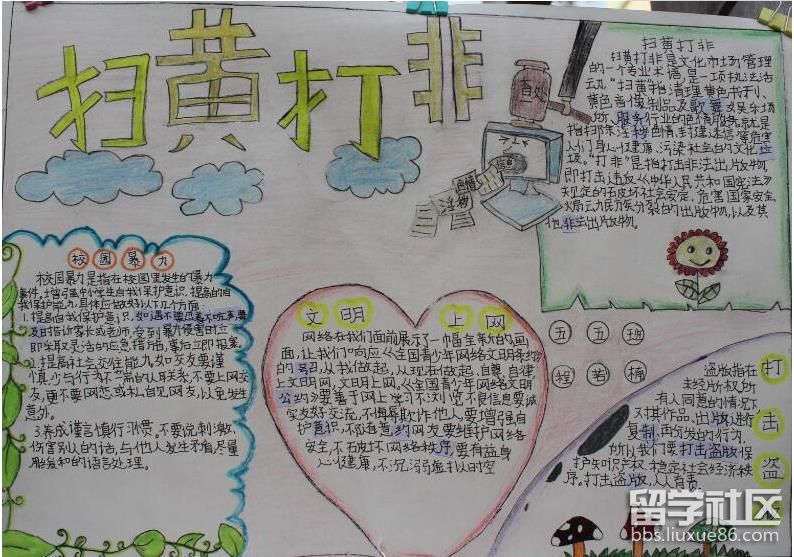 扫黄打非
扫黄打非
扫黄打非是文化市场管理
的一个专业术语,是一项执法活
动。"扫黄"指清理黄色书刊、
黄色音像制品及歌舞娱乐场
所、服务行业的色情服务,就是
指扫除
色情、封建迷信等危害
人们身心健康、污染社会的文化垃
圾。"打非"是指打击非法出版物,
即打击违反《中华人民共和国宪法》
规定的破坏社会安定,危害国家安全
煽动民族分裂的出版物,以及其
他非法出版物。
校园暴力
校园暴力是指在校园里发生的暴力
事件。增强中小学生自我保护意识,提高的自
我保护能力,具体应做好以下几个方面:
1.提高自我保护意识。
及时告诉家长或老师,受到暴力侵害时立
即采取灵活的应急措施,事后立即报案。
2.提高社会交往能力。如交友要谨
慎,少与行为不一高的人联系,不要上网交
友,更不要网恋或私自见网友,以免发生
意外。
3.养成谨言慎行习惯。不要说刺激、
伤害别人的话,与他人发生矛盾尽量
用缓和的语言处理。
文明上网
网络在我们面前展示了一幅全新的画
面,让我们响应《全国青少年网络文明公约》
的号召,从我做起,从现在做起,自尊、自律,
上文明网,文明上网。《全国青少年网络文明
公约》要善于网上学习不浏览不良信息要诚
实友好交流,不侮辱欺诈他人,要增强自
护意识,不随意约网友,要维护网络
安全,不破坏网络秩序,要有益身
心健康,不沉溺虚拟时空
五五班
程若楠
打击盗版
盗版指在
未经版权所
有人同意的情况下,
对其作品、出版进行
复制、再分发的行为,
所以我们要打击盗版保
护知识产权,稳定社会经济秩
序。打击盗版,人人有责。
留学社区
bbs.liuxue86.com